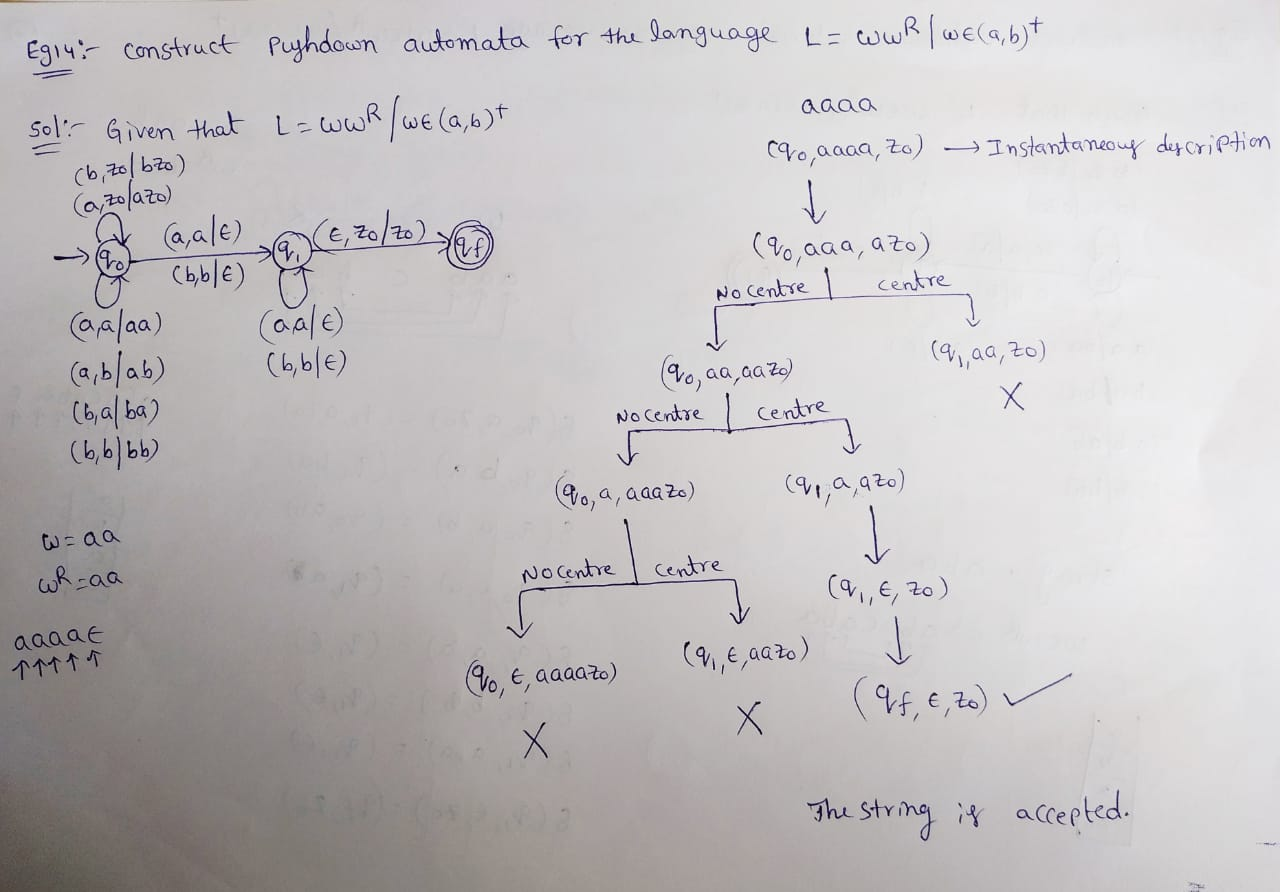 Eg14:- Construct Pushdown automata for the language L = ωω^R / ω∈(a,b)⁺
Sol:- Given that L = ωω^R / ω∈(a,b)⁺
(b,z₀/bz₀)
(a,z₀/az₀)
(a,a/ϵ)
(ϵ,z₀/z₀)
q₀
q₁
qf
(b,b/ϵ)
(a,a/aa)
(a,b/ab)
(b,a/ba)
(b,b/bb)
(a,a/ϵ)
(b,b/ϵ)
ω = aa
ω^R = aa
aaaaϵ
↑↑↑↑↑
aaaa
(q₀,aaaa,z₀) → Instantaneous description
(q₀,aaa,az₀)
No centre
centre
(q₀,aa,aaz₀)
(q₁,aa,z₀)
X
No centre
centre
(q₀,a,aaaz₀)
(q₁,a,az₀)
No centre
centre
(q₁,ϵ,z₀)
(q₀,ϵ,aaaaz₀)
(q₁,ϵ,aaz₀)
(qf,ϵ,z₀) ✓
X
X
The string is accepted.